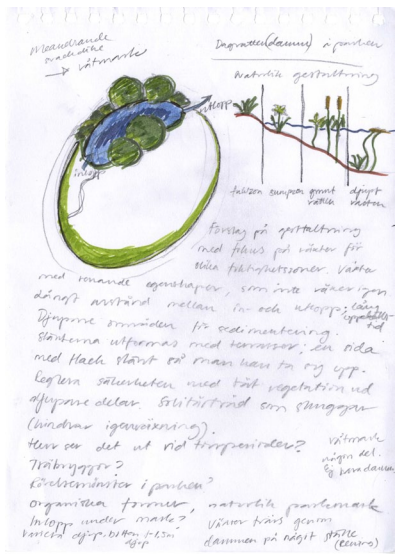 Meandrande
svackdike
→ våtmark
Dagvatten(damm) i parken
Naturlig gestaltning
utlopp
inlopp
fuktzon sumpzon grunt vatten djupt vatten
Förslag på gestaltning
med fokus på växter för
olika fuktighetszoner. Växter
med renande egenskaper, som inte växer igen
långt avstånd mellan in- och utlopp; lång uppehållstid
Djupare områden för sedimentering.
Slänterna utformas med terrasser; en sida
med flack slänt så man kan ta sig upp.
Reglera säkerheten med tät vegetation vid
djupare delar. Solitärträd som skuggar
(hindrar igenväxning).
Hur ser det ut vid torrperioder?
våtmark
någon del.
Ej bara damm
Träbryggor?
Rörelsemönster i parken?
organiska former, naturlig parkmark
Inlopp under mark? Växter trivs genom
variera djup botten 1-1,5m dammen på något ställe
djup (centra)